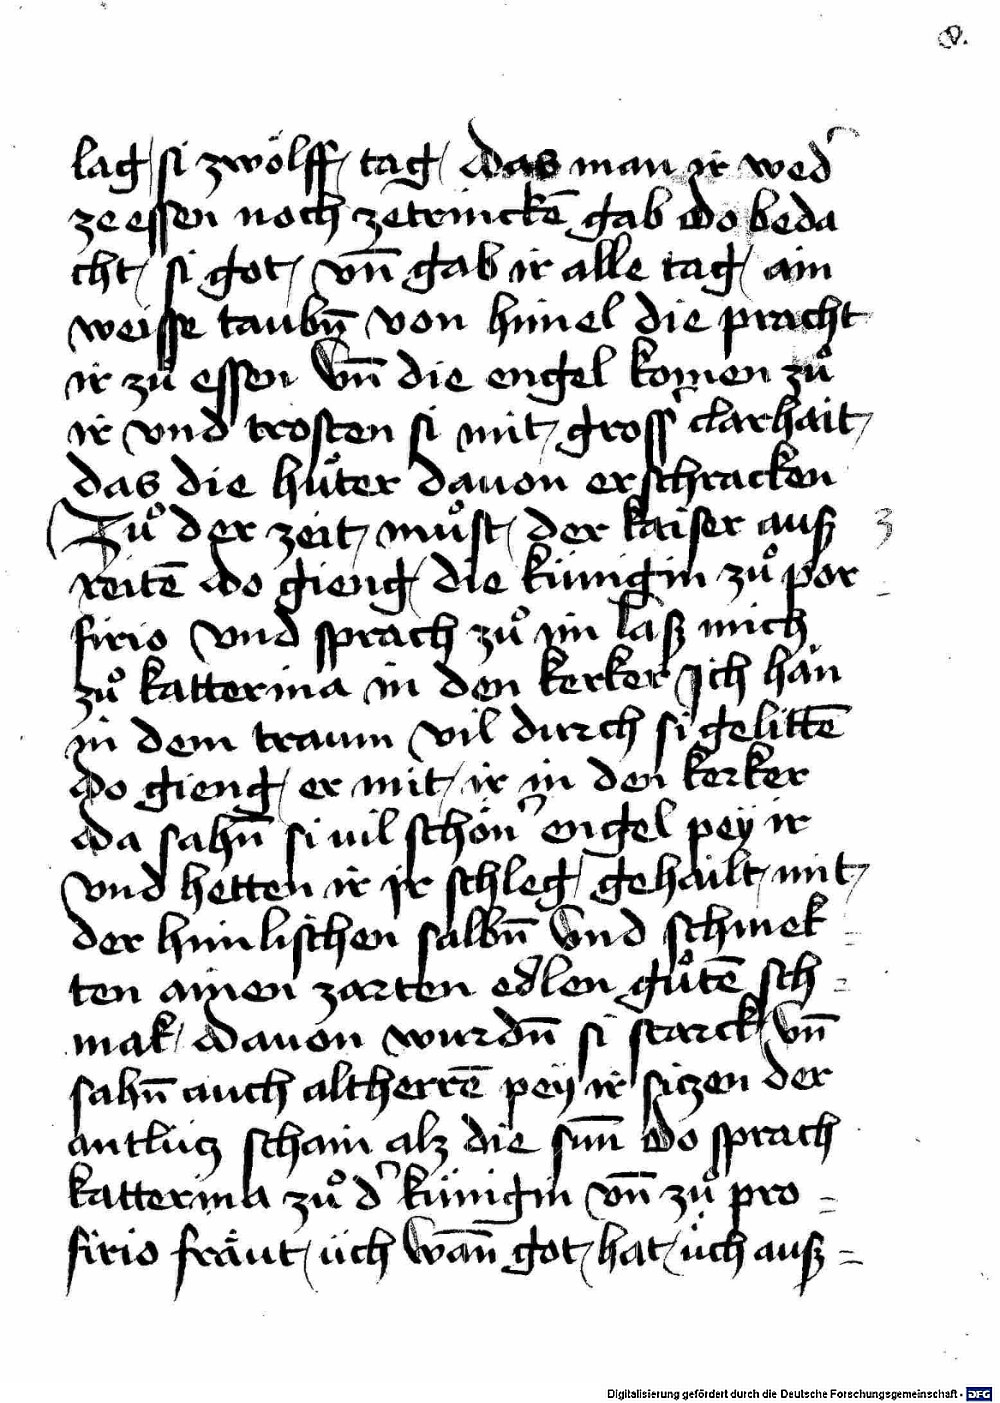 v.
lag si zwölff tag das man ir wed᾽
ze essen noch ze trinckē gab do beda
cht si got vn̄ gab ir alle tag ain
weisse taubn̄ von himel die pracht
ir zů essen Vn̄ die engel komen zů
ir vnd trosten si mit gross᾽ clarhait
das die hůter dauon erschracken
Zů der zeit můst der kaiser ausz
reitē do gieng die künigin zů por
firio vnd sprach zů im lasz mich
zů katterina in den kerker Ich han
in dem traum vil durch si gelittē
do gieng er mit ir in den kerker
da sahn̄ si vil schön᾽ engel pey ir
vnd hetten ir ir schleg gehailt mit
der himlischen salbn̄ Vnd schmek =
ten ainen zarten edlen gůtē sch =
mak dauon wurdn̄ si starck Vn̄
sahn̄ auch altherrē pey ir siczen der
antlücz schain alz die sun̄ do sprach
katterina zů d᾽ künigin vn̄ zů pro =
firio fräut üch Wan̄ got hat üch ausz =
Digitalisierung gefördert durch die Deutsche Forschungsgemeinschaft - DFG